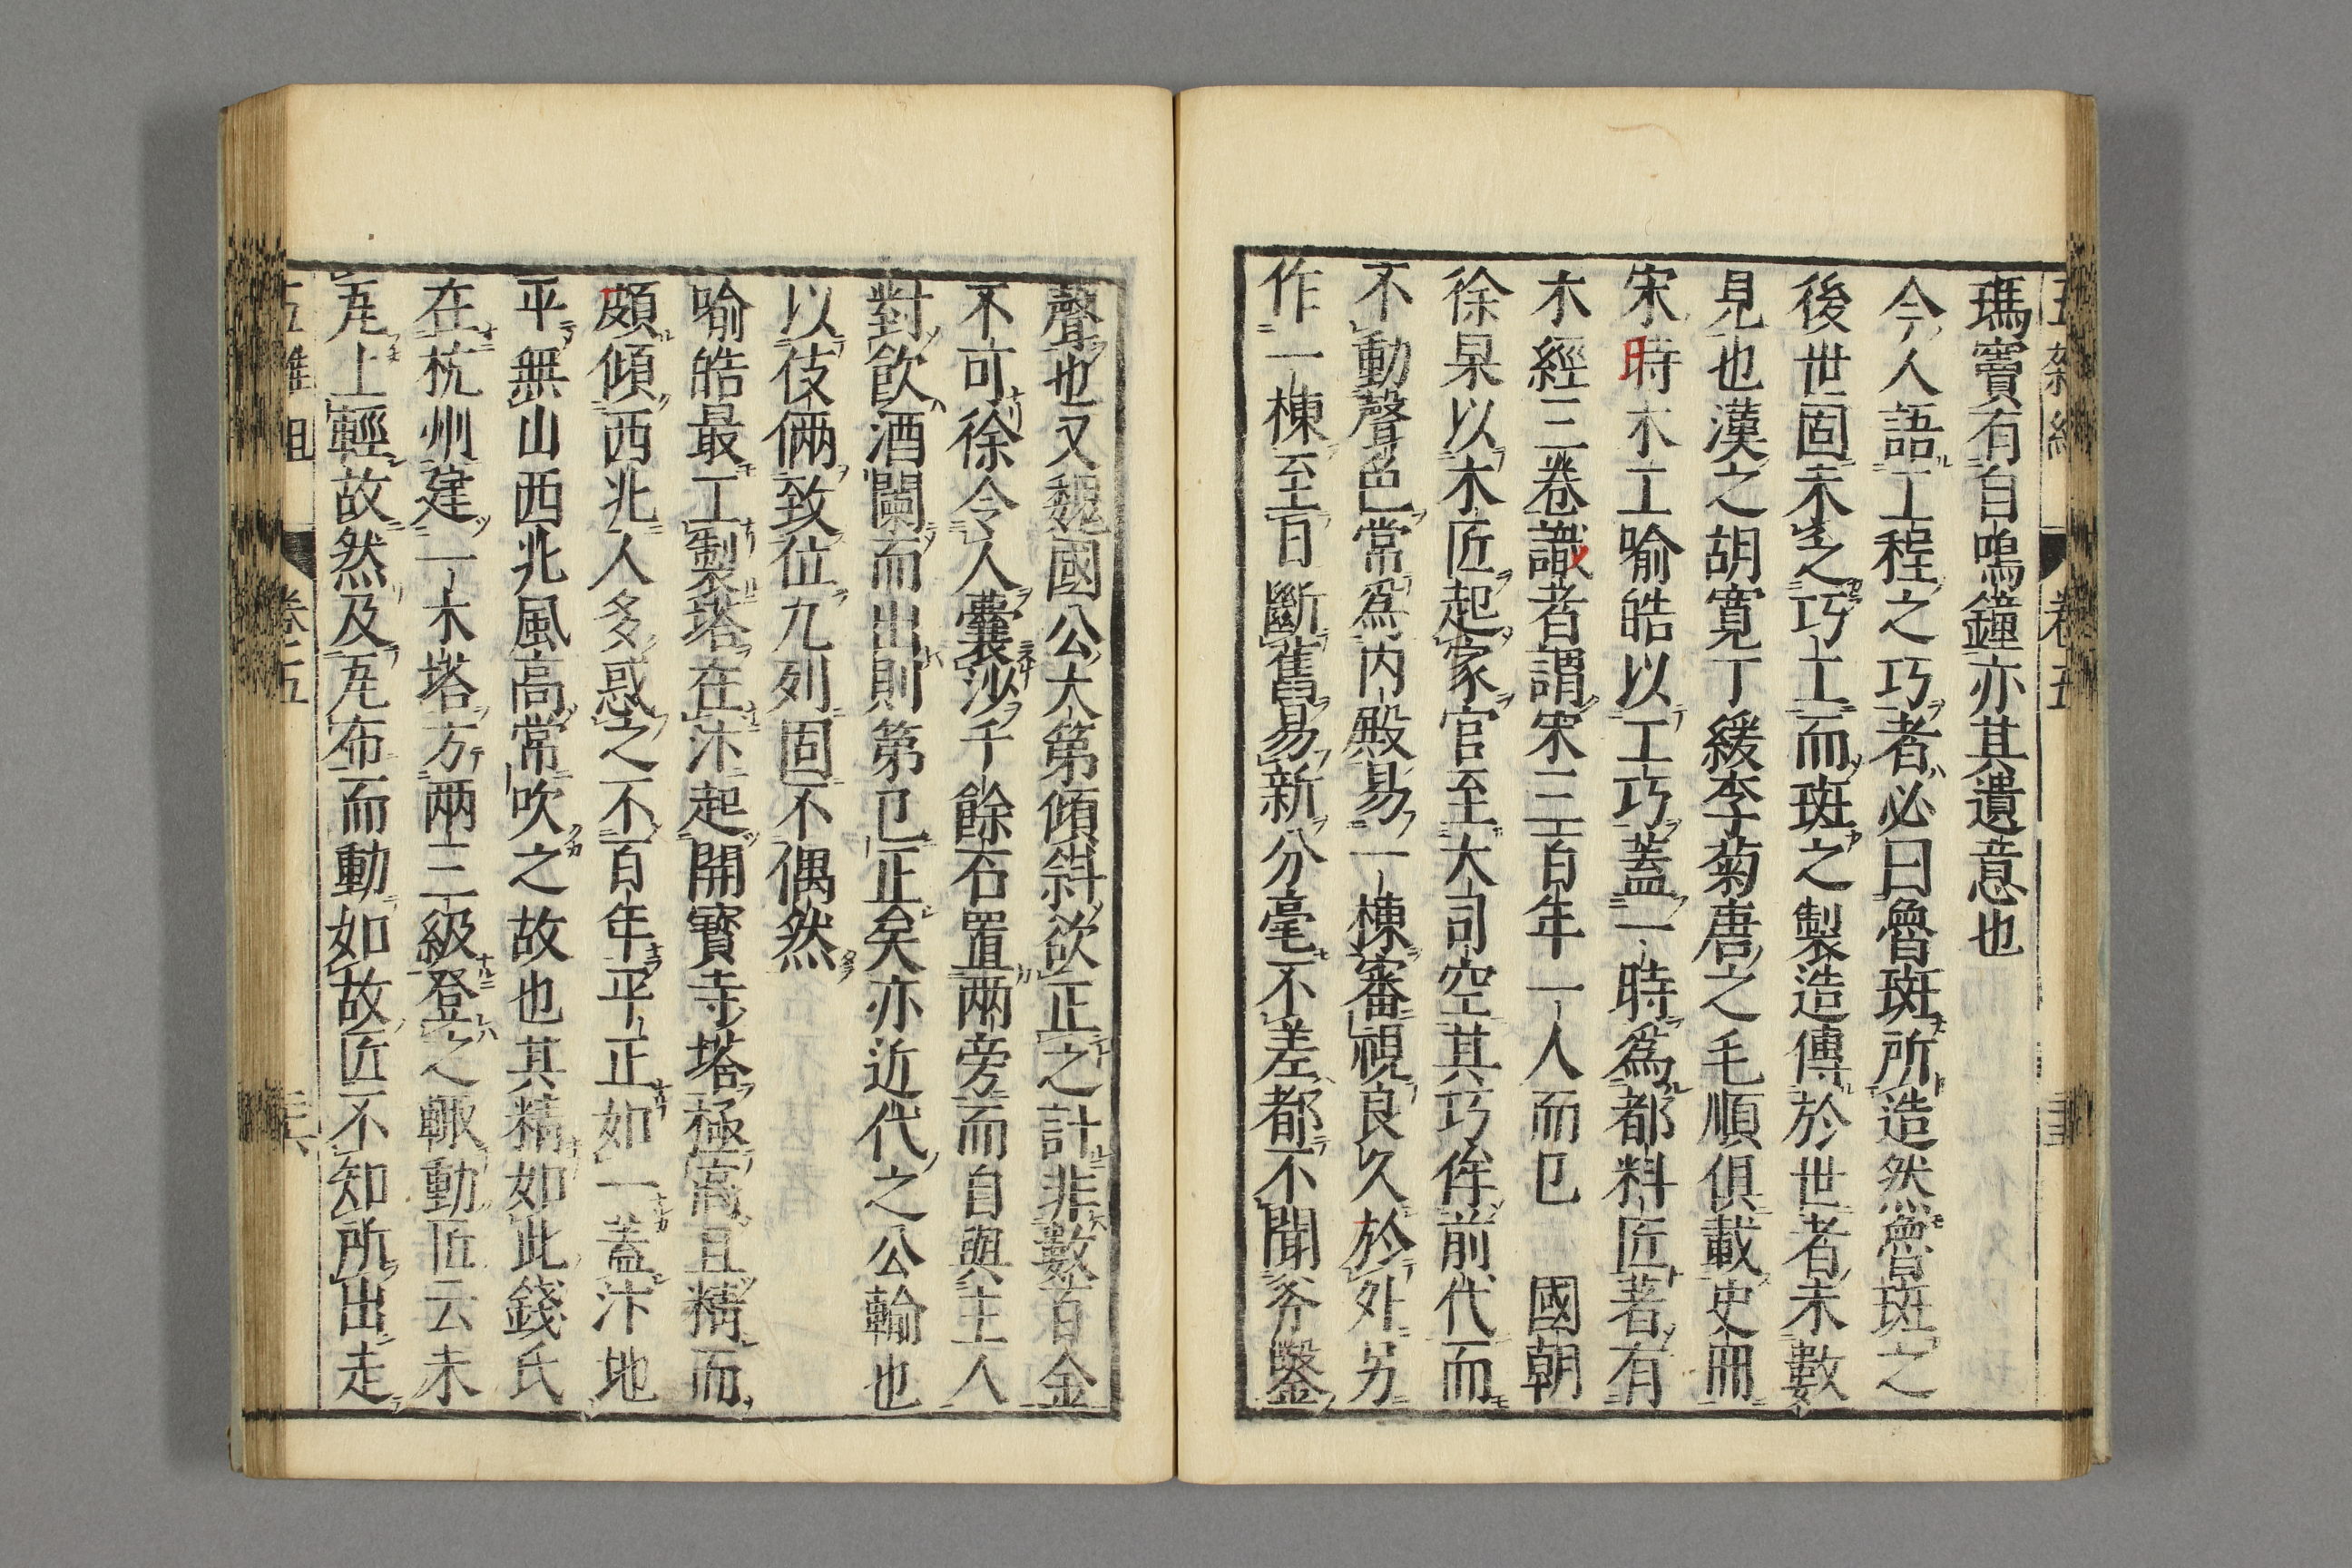 瑪竇有自鳴鐘亦其遺意也
今人語工程之巧者必曰魯班所造然魯班之
後世固未乏巧工而班之製造傳於世者未數
見也漢之胡寬丁緩李菊唐之毛順俱載史冊
宋時木工喻皓以工巧蓋一時爲都料匠著有
木經三卷識者謂宋三百年一人而已　國朝
徐杲以木匠起家官至大司空其巧侔前代而
不動聲色常爲内殿易一棟審視良久於外另
作一棟至日斷舊易新分毫不差都不聞斧鑿
聲也又魏國公大第傾斜欲正之計非數百金
不可徐令人囊沙千餘石置兩旁而自與主人
對飲酒闌而出則第已正矣亦近代之公輸也
以伎倆致位九列固不偶然
喻皓最工製塔在汴起開寶寺塔極高且精而
頗傾西北人多惑之不百年平正如一蓋汴地
平無山西北風高常吹之故也其精如此錢氏
在杭州建一木塔方兩三級登之輙動匠云未
瓦上輕故然及瓦布而動如故匠不知所出走
五雜組　卷五